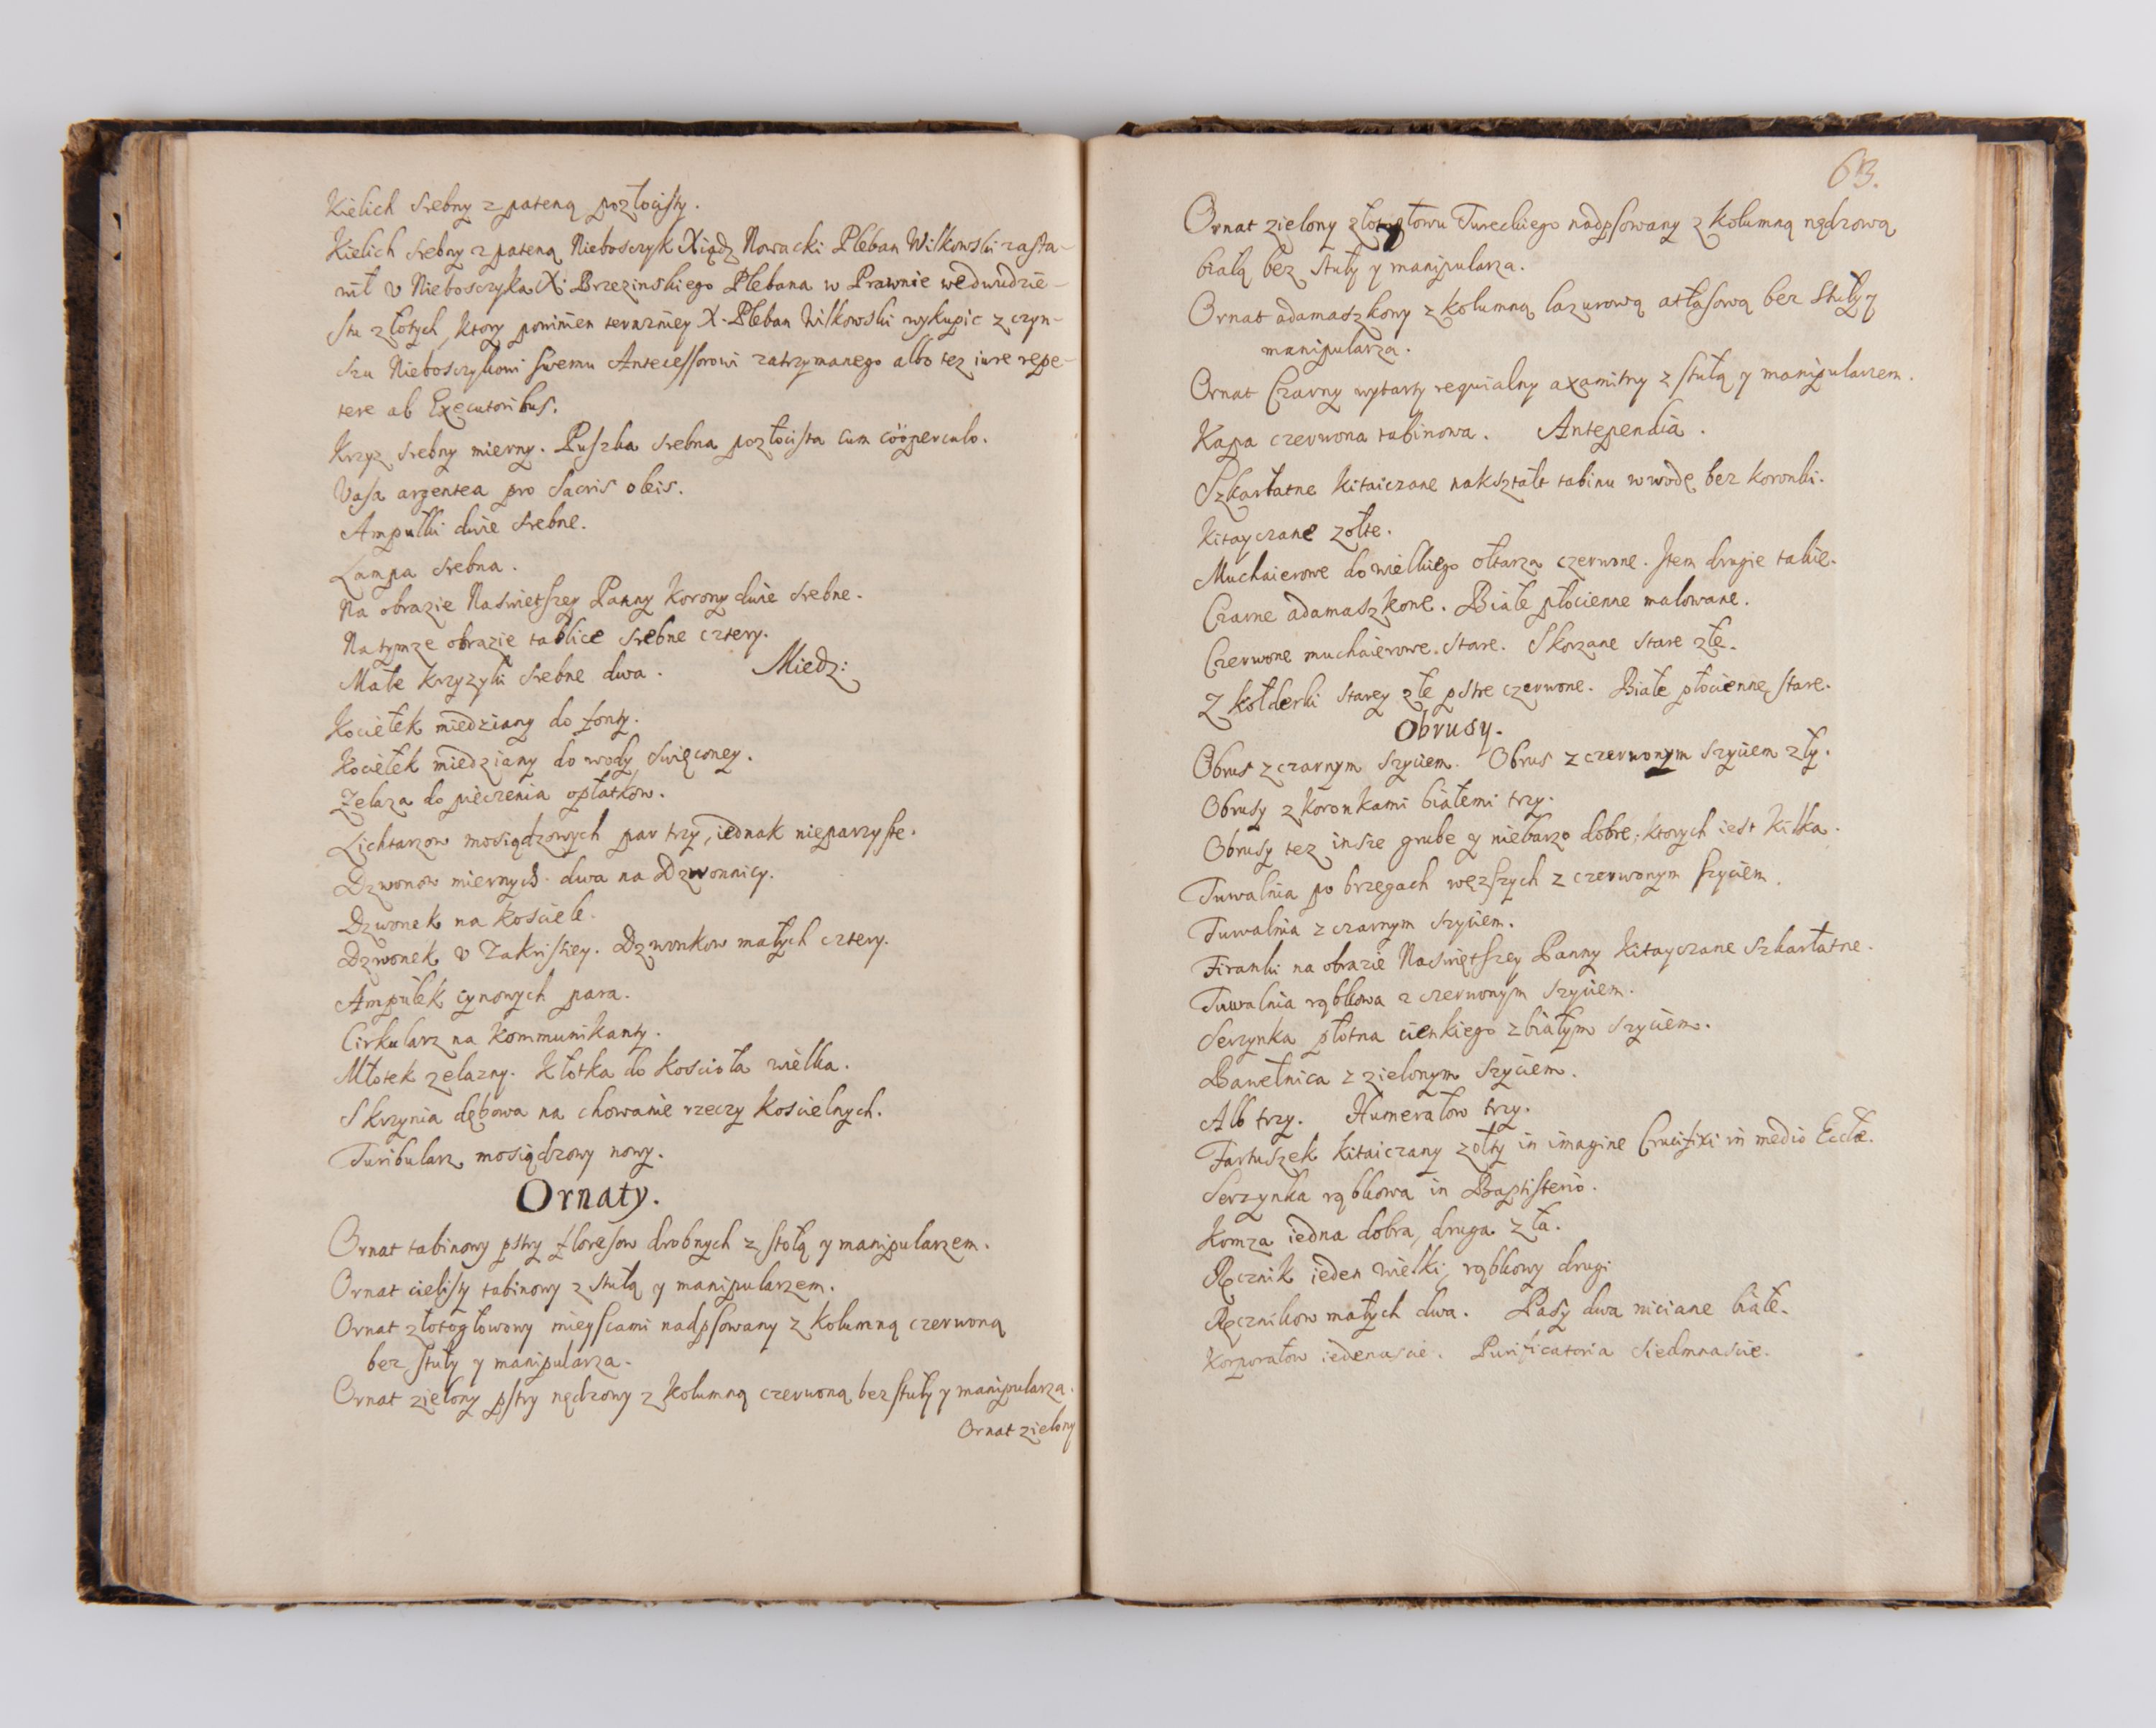 Kielich srebny z pateną pozłocisty.
Kielich srebny z pateną Nieboscyk Xiądz Nowacki Pleban Wilkowski zasta-
wił v Nieboscyka X. Brzezinskiego Plebana w Prawnie wedwudzie-
stu złotych, ktory powinien teraznieÿ X. Pleban Wilkowski wykupic z czyn-
szu Nieboszykowi swemu Antecessorowi zatrzymanego albo tez iure repe-
tere ab Executoribus.
Krzyz srebny mierny. Puszka srebna pozłocista cum cööperculo.
Vasa argentea pro sacris oleis.
Ampułki dwie srebne.
Lampa srebna.
Na obrazie Naswietszey Panny Korony dwie srebne.
Na tymze obrazie tablice srebne cztery.
Małe krzyzyki srebne dwa. Miedz:
Kociełek miedziany do fonty.
Kociełek miedziany do wody swięconey.
Zelaza do pieczenia opłatkow.
Lichtarzow mosiądzowych par trzy, iednak nieparzyste.
Dzwonow miernych dwa na Dzwonnicy.
Dzwonek na kosciele.
Dzwonek v Zakristiey. Dzwonkow małych cztery.
Ampułek cynowych para.
Cirkularz na kommunikanty.
Młotek zelazny. Kłotka do Koscioła wielka.
Skrzynia dębowa na chowanie rzeczy koscielnych.
Turibularz mosiądzowy nowy.
Ornaty.
Ornat tabinowy pstry floresow drobnych z stołą y manipularzem.
Ornat cielisty tabinowy z stułą y manipularzem.
Ornat złotogłowowy mieyscami nadpsowany z kolumną czerwoną
bez stuły y manipularza.
Ornat zielony pstry nędzowy z kolumną czerwoną bez stuły y manipularza.
Ornat zielony
63.
Ornat zielony złotogłowu Tureckiego nadpsowany z kolumną nędzową
białą bez stuły y manipularza.
Ornat adamaszkowy z kolumną lazurową atłasową bez stuły y
manipularza.
Ornat Czarny wytarty requialny axamitny z stułą y manipularzem.
Kapa czerwona tabinowa. Antependia.
Szkarłatne kitaiczane nakształt tabinu w wodę bez koronki.
Kitayczane zołte.
Muchaierowe do wielkiego ołtarza czerwone. Item drugie takie.
Czarne adamaszkowe. Białe płocienne malowane.
Czerwone muchaierowe stare. Skorzane stare złe.
Z kołderki starey złe pstre czerwone. Białe płocienne stare.
Obrusy.
Obrus z czarnym szyciem. Obrus z czerwonym szyciem zły.
Obrusy z koronkami białemi trzy.
Obrusy tez insze grube y niebarzo dobre, ktorych iest kilka.
Tuwalnia po brzegach węzszych z czerwonym szyciem.
Tuwalnia z czarnym szyciem.
Firanki na obrazie Naswiętszey Panny kitayczane szkarłatne.
Tuwalnia rąbkowa z czerwonym szyciem.
Serzynka płotna cienkiego z białym szyciem.
Bawełnica z zielonym szyciem.
Alb trzy. Humerałow trzy.
Fartuszek kitaiczany zołty in imagine Crucifixi in medio Eccłæ.
Serzynka rąbkowa in Baptisterio.
Komza iedna dobra, druga zła.
Ręcznik ieden wielki, rąbkowy drugi
Ręcznikow małych dwa. Pasy dwa niciane białe.
Korporałow iedenascie. Purificatoria siedmnascie.